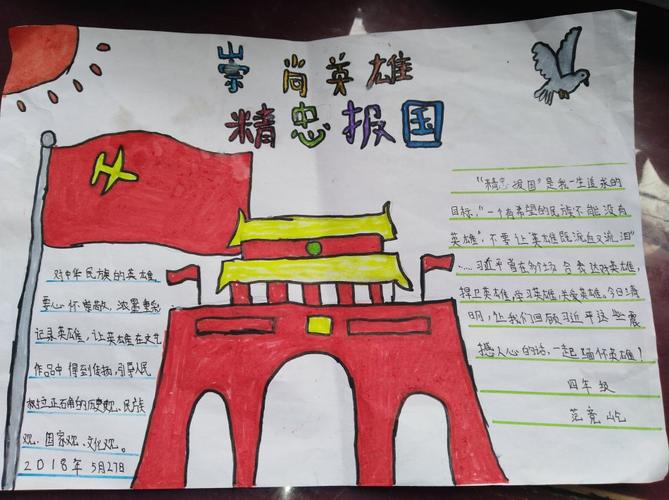 崇尚英雄
精忠报国
对中华民族的英雄,
要心怀崇敬,浓墨重彩
记录英雄,让英雄在文艺
作品中得到传扬,引导人民
树立正确的历史观、民族
观、国家观、文化观。
2018年5月27日
“精忠报国”是我一生追求的
目标。“一个有希望的民族不能没有
英雄”,不要让“英雄既流血又流泪”
……习近平曾在多个场合表达对英雄,
捍卫英雄,学习英雄,关爱英雄,今日清
明,让我们回顾习近平这些震
撼人心的话,一起缅怀英雄!
四年级
范竞屹